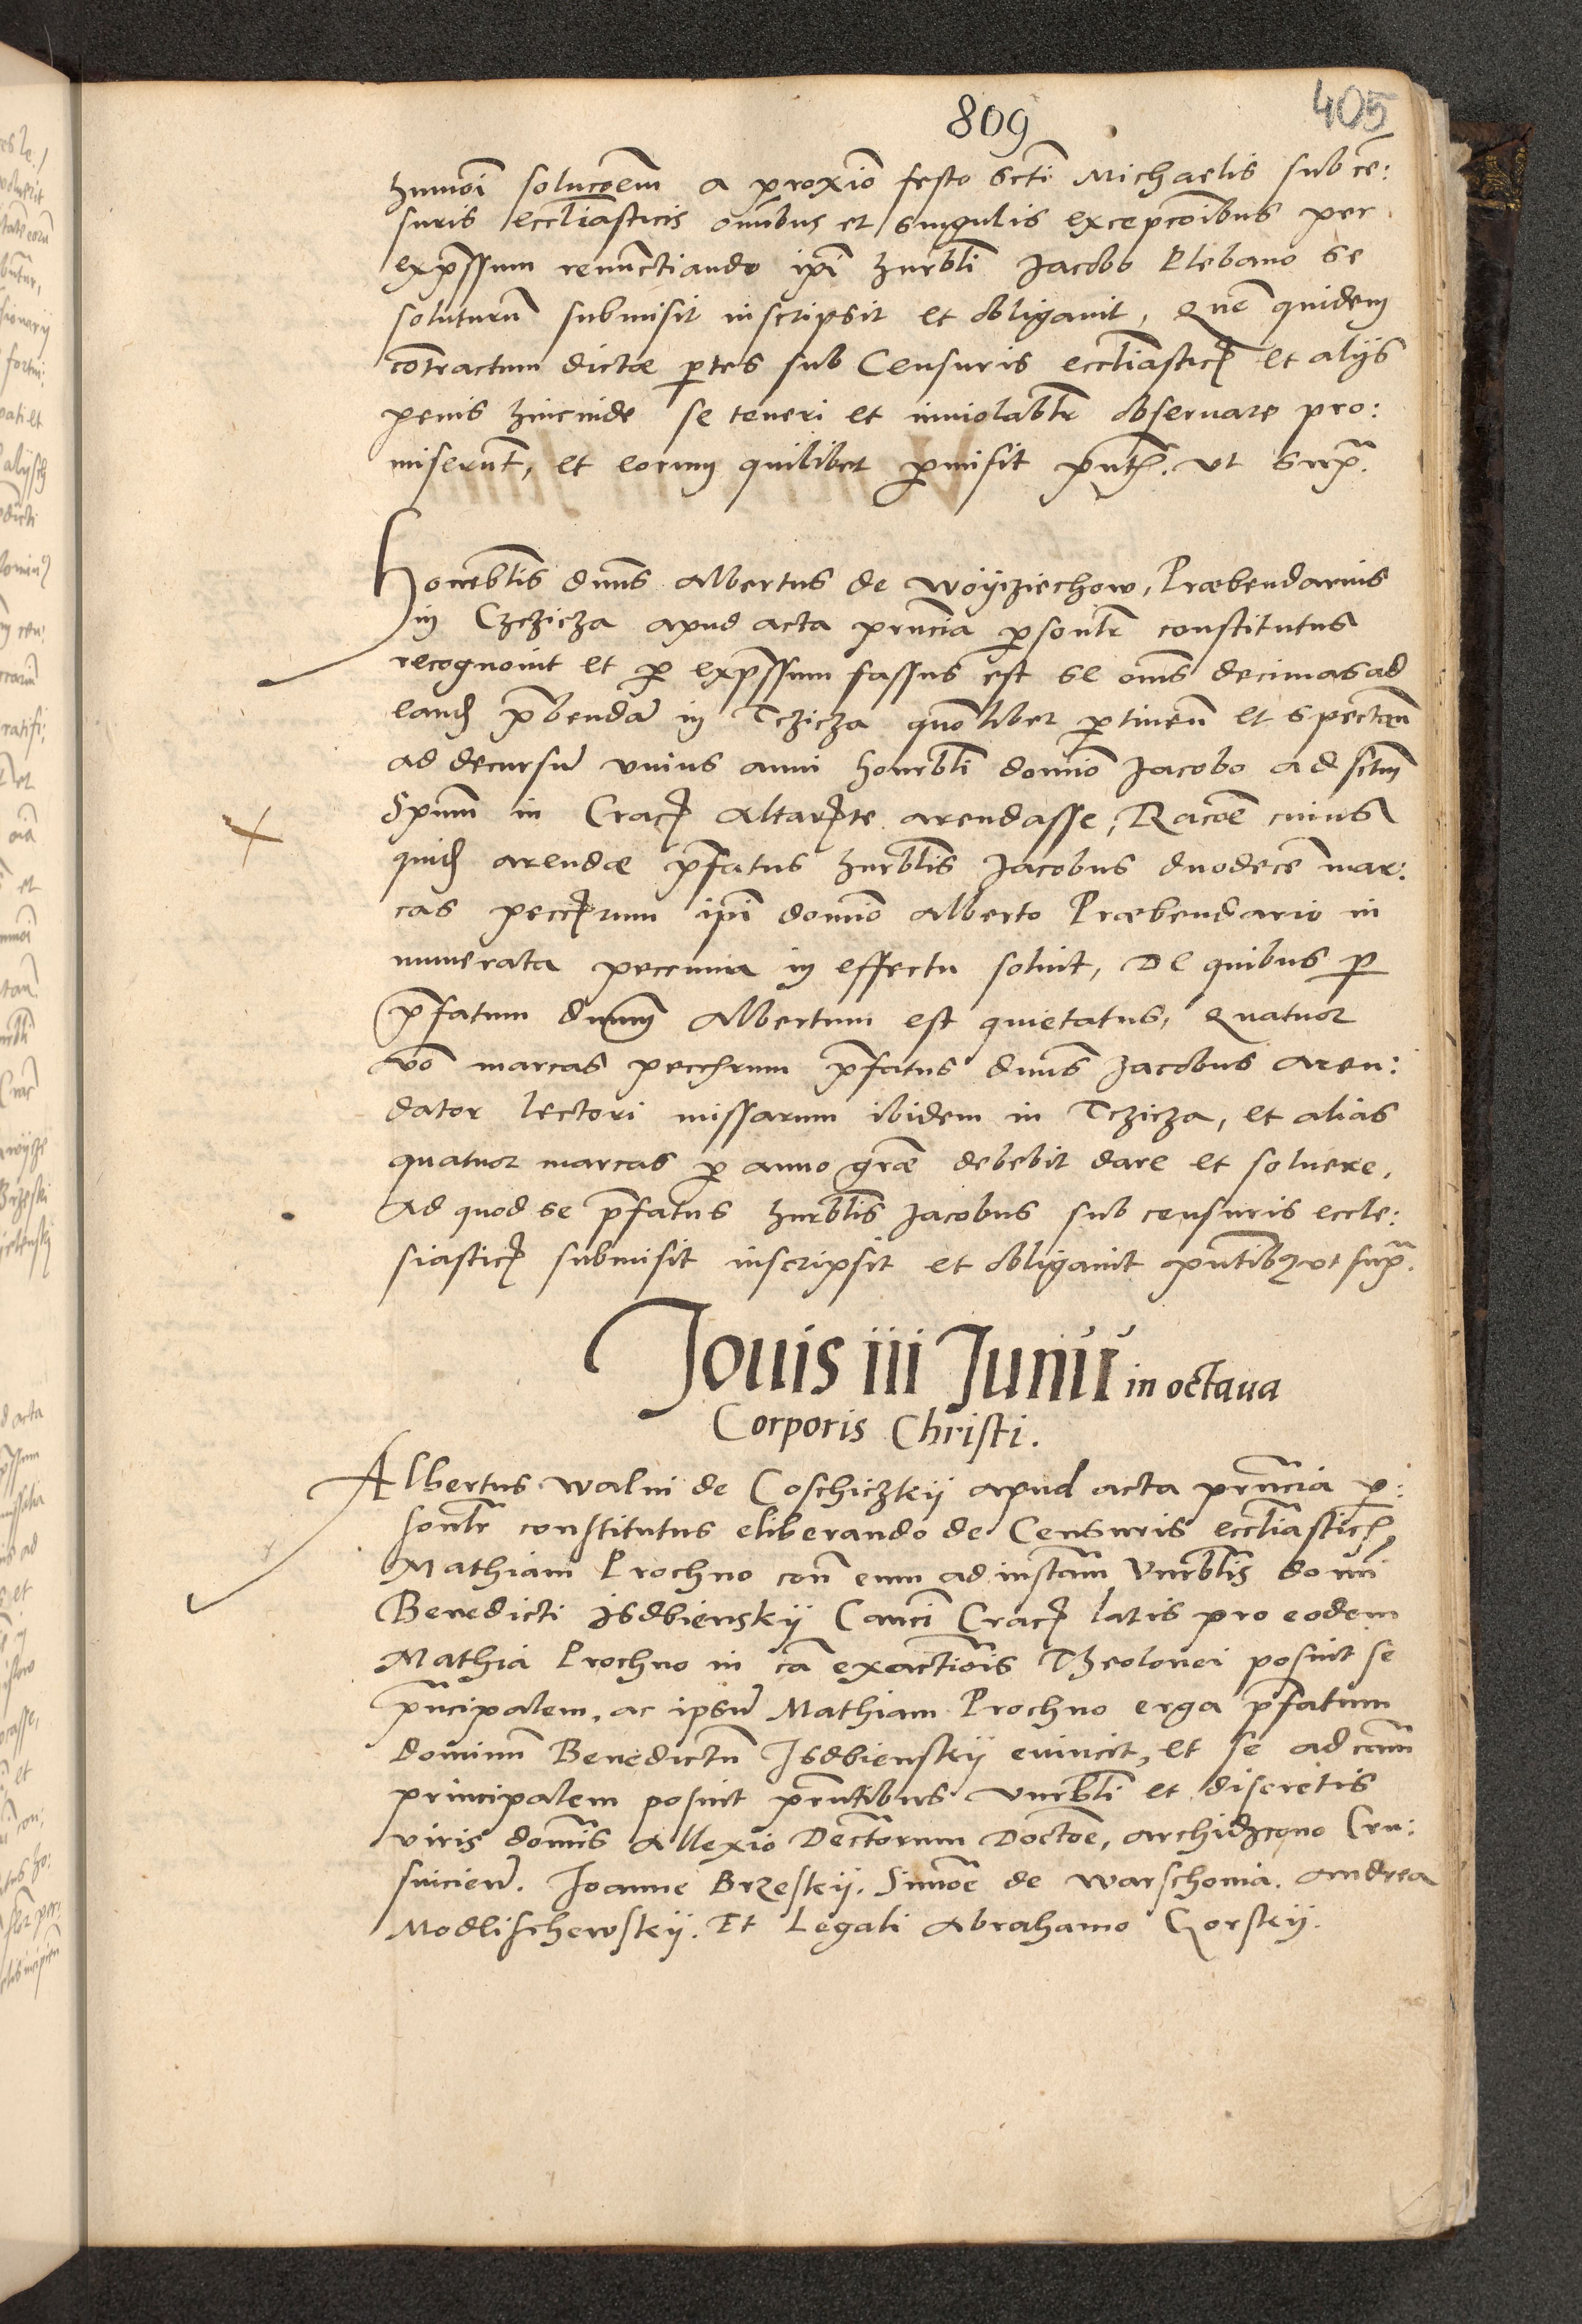 809
405
huiusmoi solucoem a proxio festo Scti Michaelis sub ce:
suris eccliasticis omibus et singulis excepcoibus per
expssum renunctiando ipi hnrbli Jacobo Plebano se
soluturu submisit inscripsit et obligauit, Que quidem
contractum dictæ ptes sub Censuris eccliastic et alijs
penis hincinde se teneri et inuiolabtr obseruare pro:
miserunt, et eorum quilibet pmisit pntb. vt supra.
Honrablis dnus Albertus de Woyziechow, Præbendarius
in Czchicza apud acta prncia psonlr constitutus
recognouit et p expssum fassus est se oms decimas ad
eand pbenda in Tczicza quolibet ptinen et spectan
ad decursu vnius anni honrbli domio Jacobo ad sctum
Spum in Crac Altarste arendasse, Racoe cuius
quid arendæ pfatus hnrblis Jacobus duodece mar:
cas peccrum ipi domio Alberto Præbendario in
numerata peccunia in effectu soluit, De quibus p
pfatum dnum Albertum est quietatus, Quatuor
vo marcas peccrum pfatus dnus Jacobus aren:
dator lectori missarum ibidem in Tczicza, et alias
quatuor marcas p anno gre debebit dare et soluere,
Ad quod se pfatus hnrblis Jacobus sub censuris eccle:
siastic submisit inscripsit et obligauit pntibq vt supra.
Jouis iii Junii in octaua
Corporis Christi.
Albertus Walni de Coschiczkij apud acta prncia p:
sonlr constitutus eliberando de Censuris eccliastich
Mathiam Prochno con eum ad instam Vnrblis domi
Benedicti Isdbienskij Canci Crac latis pro eodem
Mathia Prochno in ca exactiois Theolonei posuit se
pncipalem, ac ipsu Mathiam Prochno erga pfatum
dominu Benedictu Isdbienskij euincit, et se ad cam
principalem posuit prntibus Vnrbli et discretis
viris domis Allexio Dectorum Doctoe, archidiacono Cru:
suicien. Joanne Brzeskij. Simoe de Warschouia. Andrea
Modlischewskij. Et Legali Abrahamo Gorskij.